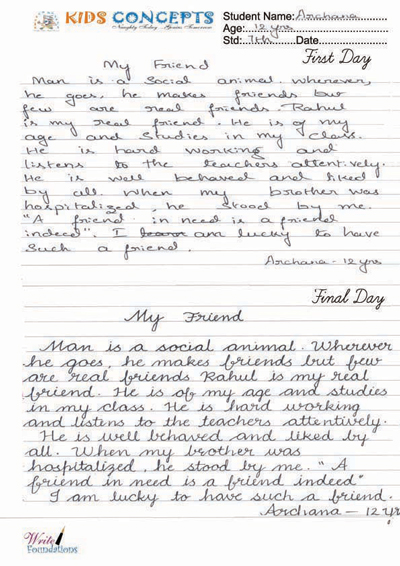 KIDS CONCEPTS
Naughty Today - Genius Tomorrow
Student Name: Archana
Age: 12 yrs
Std: 7th Date
First Day
My Friend
Man is a social animal. Wherever,
he goes, he makes friends but
few are real friends. Rahul
is my real friend. He is of my
age and studies in my class.
He is hard working and
listens to the teachers attentively.
He is well behaved and liked
by all. When my brother was
hospitalized, he stood by me.
"A friend in need is a friend
indeed". I am lucky to have
such a friend.
Archana - 12 yrs
Final Day
My Friend
Man is a social animal. Wherever
he goes, he makes friends but few
are real friends Rahul is my real
friend. He is of my age and studies
in my class. He is hard working
and listens to the teachers attentively.
He is well behaved and liked by
all. When my brother was
hospitalized, he stood by me. "A
friend in need is a friend indeed"
I am lucky to have such a friend.
Archana - 12 yrs
Write
Foundations